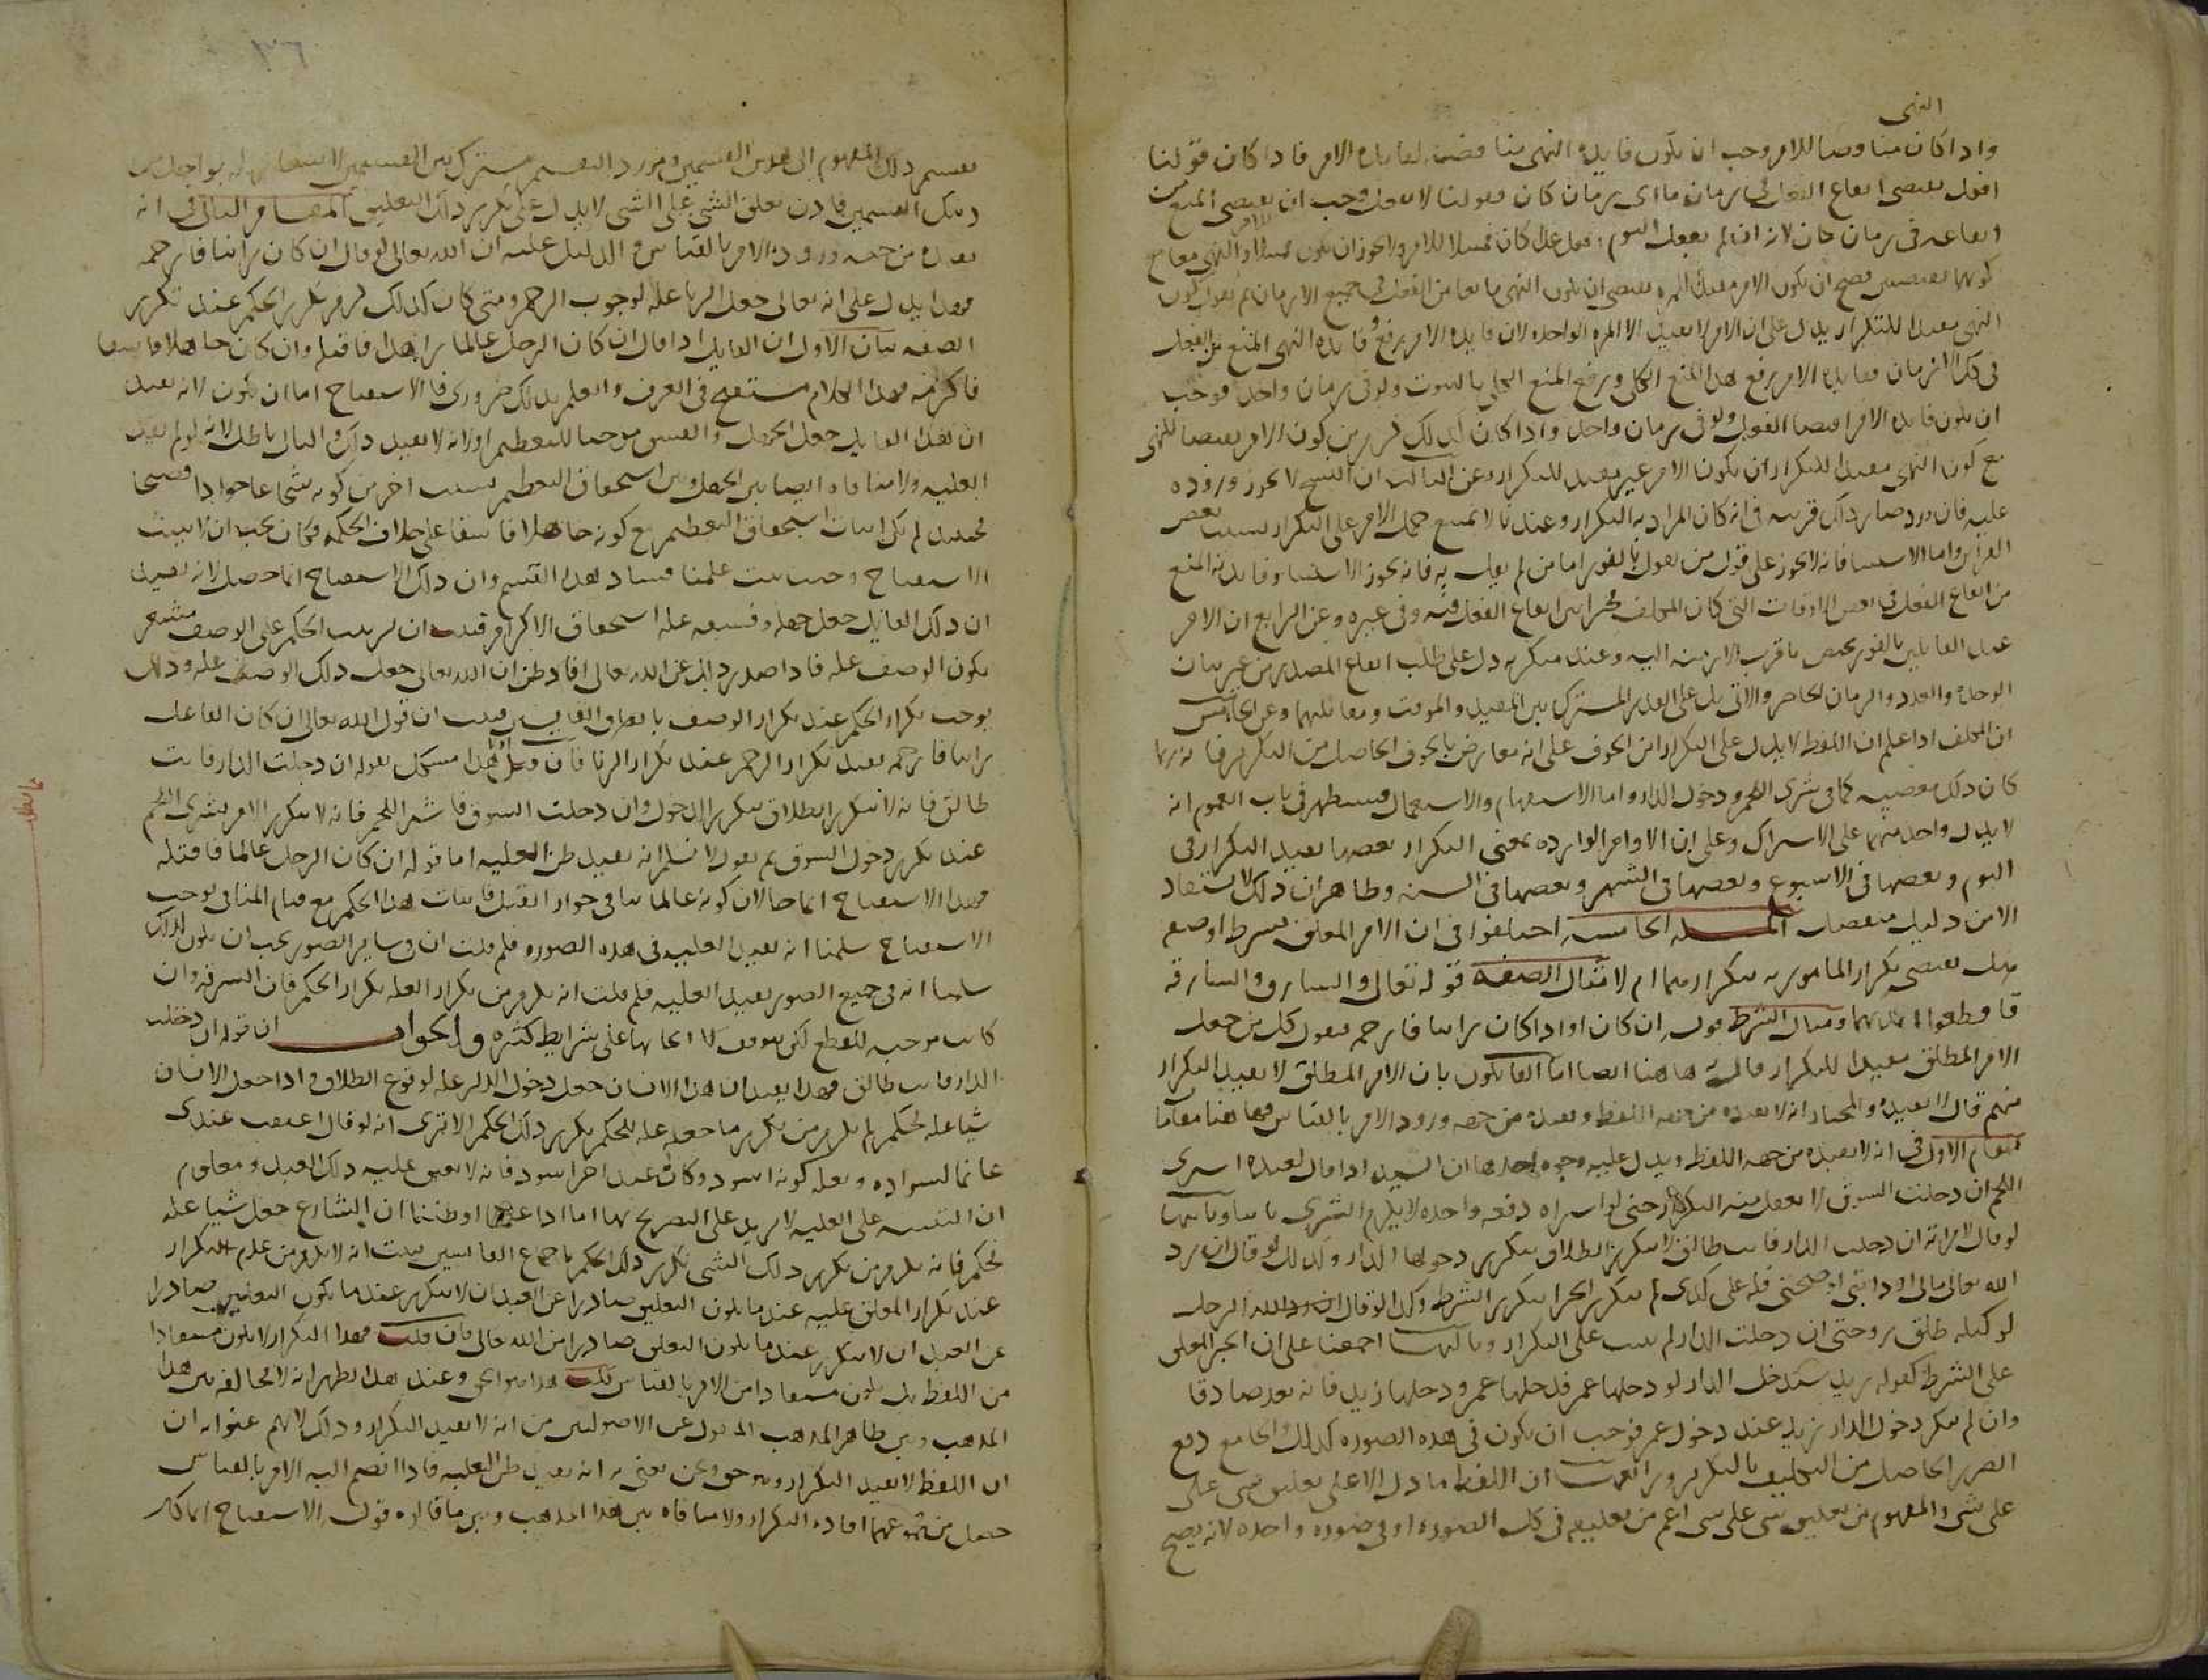 النهى
واذا كان مناقضا للامر وجب ان يكون فايده النهى مناقضه لفايده الامر فاذا كان قولنا
افعل يقتضى ايقاع الفعل فى زمان ما اى زمان كان فقولنا لا تفعل وجب ان يقتضى المنع من
ايقاعه فى زمان كان لانه ان لم يفعل اليوم
النهى مفيدا للتكرار يدل على ان الامر لا يفيد الا المره الواحده لان فايده الامر رفع فايده النهى المنع من الفعل
فى كل الازمان ففايده الامر رفع هذا المنع الكلى ورفع المنع الكلى بالثبوت ولو فى زمان واحد فوجب
ان يكون فايده الامر اقتضا الفعل ولو فى زمان واحد واذا كان كذلك لزم من كون الامر نقيضا للنهى
مع كون النهى مفيدا للتكرار ان يكون الامر غير مفيد للتكرار وعن الثالث ان النسخ لا يجوز وروده
عليه فان ورد صار ذلك قرينه فى انه كان المراد به التكرار وعندنا لا يمتنع حمل الامر على التكرار بسبب بعض
القراين واما الاستثنا فانه لا يجوز على قول من يقول بالفور اما من لم يقل به فانه يجوز الاستثنا وفايدته المنع
من ايقاع الفعل فى بعض الاوقات التى كان المكلف مخيرا بين ايقاع الفعل فيه وفى غيره وعن الرابع ان الامر
عند القايلين بالفور يختص باقرب الازمنه اليه وعند منكريه دل على طلب ايقاع المصدر من غير بيان
الوحده والعدد والزمان الحاضر والاتى بل على القدر المشترك بين المقيد والموقت ومقابليهما وعن الخامس
ان المكلف اذا علم ان اللفظ لا يدل على التكرار امن الخوف على انه معارض بالخوف الحاصل من التكرير فانه ربما
كان ذلك معصيه كما فى شرى اللحم ودخول الدار واما الاستفهام والاستعمال فسيظهر فى باب العموم انه
لا يدل واحد منهما على الاشتراك وعلى ان الاوامر الوارده بمعنى التكرار بعضها يفيد التكرار فى
اليوم وبعضها فى الاسبوع وبعضها فى الشهر وبعضها فى السنه وظاهر ان ذلك لا يستفاد
الا من دليل منفصل المسله الخامسه اختلفوا فى ان الامر المعلق بشرط او صفه
هل يقتضى تكرار المامور به بتكرارهما ام لا مثال الصفه قوله تعالى والسارق والسارقه
فاقطعوا ايديهما ومثال الشرط قوله ان كان او اذا كان زانيا فارجمه فنقول كل من جعل
الامر المطلق مفيدا للتكرار قال به هاهنا ايضا اما القايلون بان الامر المطلق لا يفيد التكرار
منهم قال لا يفيده والمختار انه لا يفيده من جهه اللفظ ويفيده من جهه ورود الامر بالقياس فهاهنا مقامان
المقام الاول فى انه لا يفيده من جهه اللفظ ويدل عليه وجوه احدها ان السيد اذا قال لعبده اشترى
اللحم ان دخلت السوق لا يعقل منه التكرار حتى لو اشتراه دفعه واحده لا يلزم الشرى ثانيا وثانيها
لو قال لامراته ان دخلت الدار فانت طالق لا يتكرر الطلاق بتكرر دخولها الدار وكذلك لو قال ان رد
الله تعالى مالى او دابتى او صحتى فله على كذى لم يتكرر الجزا بتكرر الشرط وكذا لو قال الرجل
لوكيله طلق زوجتى ان دخلت الدار لم يثبت على التكرار وثالثها اجمعنا على ان الخبر المعلق
على الشرط كقوله زيد سيدخل الدار لو دخلها عمر فدخلها عمر ودخلها زيد فانه يعد صادقا
وان لم يتكرر دخول الدار زيد عند دخول عمر فوجب ان يكون فى هذه الصوره كذلك والجامع دفع
الضرر الحاصل من التكليف بالتكرير ورابعها ان اللفظ ما دل الا على تعليق شى على
على شى والمفهوم من تعليق شى على شى اعم من تعليقه فى كل الصور او فى صوره واحده لانه يصح
تقسيم ذلك المفهوم الى هذين القسمين ومورد التقسيم مشترك بين القسمين
ذينك القسمين فاذن تعلق الشى على الشى لا يدل على تكرير ذلك التعليق المقام الثانى فى انه
يفيده من جهه ورود الامر بالقياس والدليل عليه ان الله تعالى لو قال ان كان زانيا فارجمه
فهذا يدل على انه تعالى جعل الزنا عله لوجوب الرجم ومتى كان كذلك لزم تكرر الحكم عند تكرر
الصفه بيان الاول ان القايل اذا قال ان كان الرجل عالما زاهدا فاقتله وان كان جاهلا فاسقا
فاكرمه فهذا الكلام مستقبح فى العرف والعلم بذلك ضرورى فالاستقباح اما ان يكون لانه يفيد
ان هذا القايل جعل الجهل والفسق موجبا للتعظيم او لانه لا يفيد ذلك والثانى باطل لانه لو لم يفيد
العليه ولا منافاه ايضا بين الجهل وبين استحقاق التعظيم بسبب اخر من كونه شجاعا جوادا فصيحا
فحينئذ لم يكن اثبات استحقاق التعظيم مع كونه جاهلا فاسقا على خلاف الحكمه فكان يجب ان لا يثبت
الاستقباح وحيث ثبت علمنا فساد هذا القسم وان ذلك الاستقباح انما حصل لانه يفيد
ان ذلك القايل جعل جهله وفسقه عله استحقاق الاكرام فثبت ان ترتيب الحكم على الوصف مشعر
بكون الوصف عله فاذا صدر ذلك عن الله تعالى افاد ظن ان الله تعالى جعل ذلك الوصف عله وذلك
يوجب تكرار الحكم عند تكرار الوصف باتفاق القايسين فثبت ان قول الله تعالى ان كان الفاعل
زانيا فارجمه يفيد تكرار الرجم عند تكرار الزنا فان قيل هذا مشكل بقوله ان دخلت الدار فانت
طالق فانه لا يتكرر الطلاق بتكرر الدخول وان دخلت السوق فاشتر اللحم فانه لا يتكرر الامر بشرى اللحم
عند تكرر دخول السوق ثم نقول لا نسلم انه يفيد ظن العليه اما قوله ان كان الرجل عالما فاقتله
فهذا الاستقباح انما جا لان كونه عالما ينافى جواز القتل فاثبات هذا الحكم مع قيام المنافى يوجب
الاستقباح سلمنا انه يفيد العليه فى هذه الصوره فلم قلت ان فى ساير الصور يجب ان يكون كذلك
سلمنا انه فى جميع الصور يفيد العليه فلم قلت انه يلزم من تكرار العله تكرار الحكم فان السرقه وان
كانت موجبه للقطع لكن يتوقف ايجابها على شرايط كثيره والجواب ان قوله ان دخلت
الدار فانت طالق فهذا يفيد ان هذا الانسان جعل دخول الدار عله لوقوع الطلاق واذا جعل الانسان
شيا عله لحكم لم يلزم من تكرر ما جعله عله للحكم تكرر ذلك الحكم الا ترى انه لو قال اعتقت عبدى
غانما لسواده وبعله كونه اسود وكان عبد اخر اسود فانه لا يعتق عليه ذلك العبد ومعلوم
ان التنبيه على العليه لا يزيد على التصريح بها اما اذا علمنا او ظننا ان الشارع جعل شيا عله
لحكم فانه يلزم من تكرر ذلك الشى تكرر ذلك الحكم باجماع القايسين ثبت انه لا يلزم من عدم التكرار
عند تكرار المعلق عليه عند ما يكون التعليق صادرا عن العبد ان لا يتكرر عند ما يكون التعليق صادرا
عن العبد ان لا يتكرر عند ما يكون التعليق صادرا من الله تعالى فان قلت فهذا التكرار لا يكون مستفادا
من اللفظ بل يكون مستفادا من الامر بالقياس قلت هذا هو الحق وعند هذا يظهر انه لا مخالفه بين هذا
المذهب وبين ظاهر المذهب المنقول عن الاصوليين من انه لا يفيد التكرار وذلك لانهم عنوا به ان
ان اللفظ لا يفيد التكرار وهو حق ونحن نعنى به انه يفيد ظن العليه فاذا انضم اليه الامر بالقياس
حصل من مجموعهما افاده التكرار ولا منافاه بين هذا المذهب وبين ما قالوه قوله الاستقباح انما كان